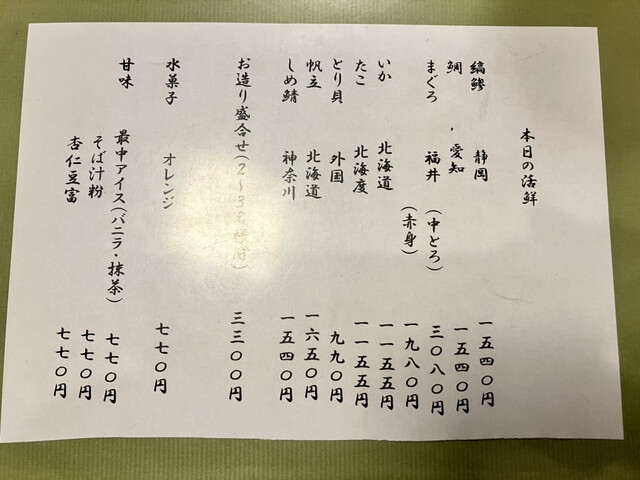 本日の活鮮
縞鯵 静岡 一五四〇円
鯛 愛知 一五四〇円
まぐろ 福井 (中とろ) 三〇八〇円
(赤身) 一九八〇円
いか 北海道 一一五五円
たこ 北海度 一一五五円
とり貝 外国 九九〇円
帆立 北海道 一六五〇円
しめ鯖 神奈川 一五四〇円
お造り盛合せ(2~3名様付) 三三〇〇円
水菓子 オレンジ 七七〇円
甘味 最中アイス(バニラ・抹茶) 七七〇円
そば汁粉 七七〇円
杏仁豆富 七七〇円